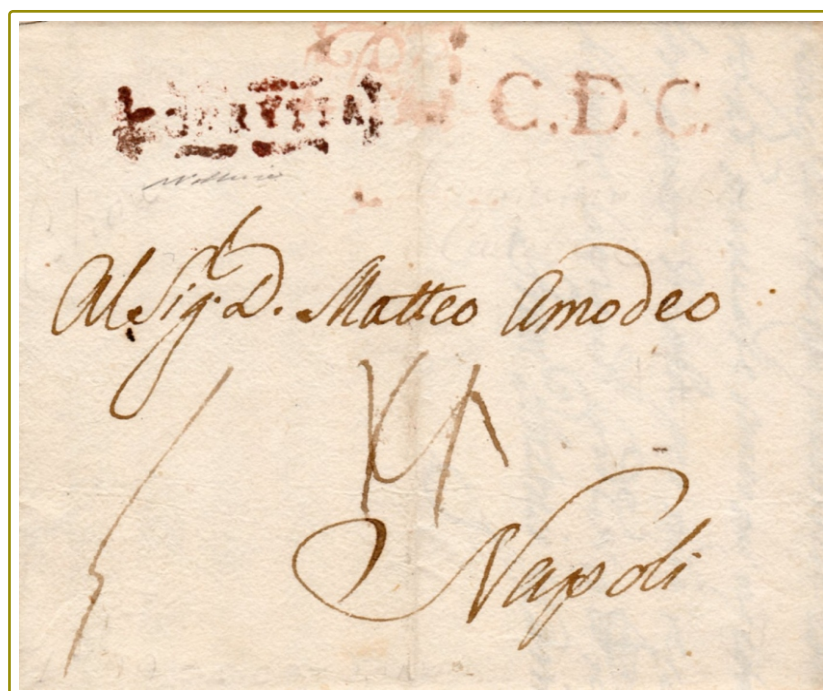 C.D.C.
Al Sig.r D. Matteo Amodeo
Napoli